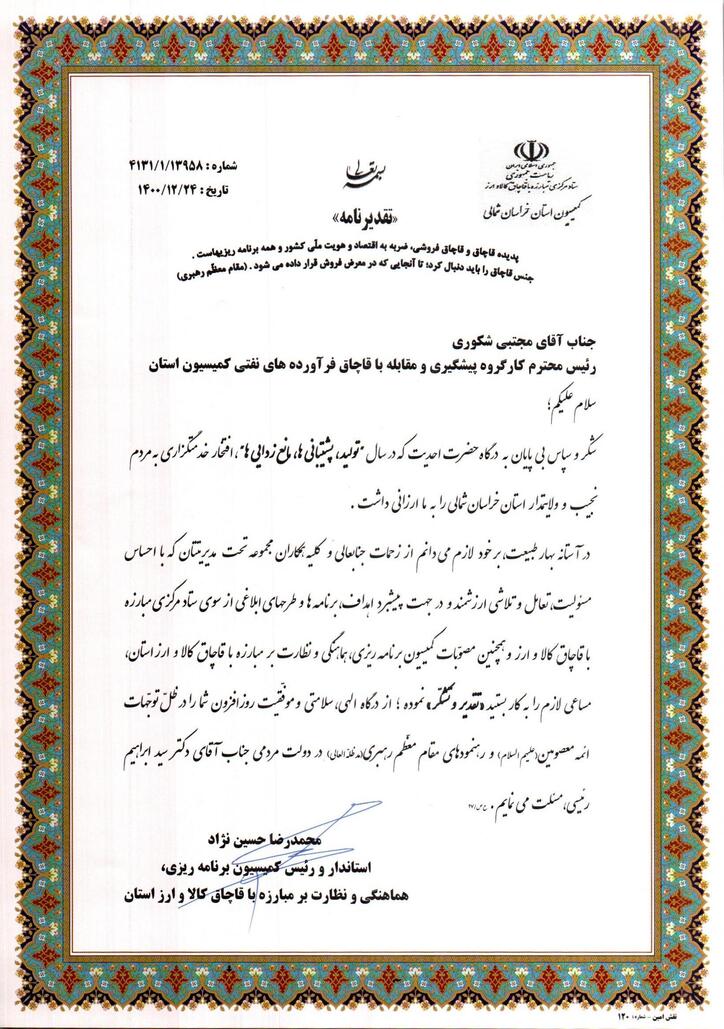 جمهوری اسلامی ایران
ریاست جمهوری
ستاد مرکزی مبارزه با قاچاق کالا و ارز
کمیسیون استان خراسان شمالی
بسمه تعالی
شماره : ۴۱۳۱/۱/۱۳۹۵۸
تاریخ : ۱۴۰۰/۱۲/۲۴
«تقدیرنامه»
پدیده قاچاق و قاچاق فروشی، ضربه به اقتصاد و هویت ملّی کشور و همه برنامه ریزیهاست .
جنس قاچاق را باید دنبال کرد؛ تا آنجایی که در معرض فروش قرار داده می شود . (مقام معظّم رهبری)
جناب آقای مجتبی شکوری
رئیس محترم کارگروه پیشگیری و مقابله با قاچاق فرآورده های نفتی کمیسیون استان
سلام علیکم؛
شکر و سپاس بی پایان به درگاه حضرت احدیت که در سال "تولید، پشتیبانی ها، مانع زدایی ها"، افتخار خدمتگزاری به مردم
نجیب و ولایتمدار استان خراسان شمالی را به ما ارزانی داشت .
در آستانه بهار طبیعت، بر خود لازم می دانم از زحمات جنابعالی و کلیه همکاران مجموعه تحت مدیریتتان که با احساس
مسئولیت، تعامل و تلاشی ارزشمند و در جهت پیشبرد اهداف، برنامه ها و طرحهای ابلاغی از سوی ستاد مرکزی مبارزه
با قاچاق کالا و ارز و همچنین مصوّبات کمیسیون برنامه ریزی، هماهنگی و نظارت بر مبارزه با قاچاق کالا و ارز استان،
مساعی لازم را به کار بستید «تقدیر و تشکّر» نموده ؛ از درگاه الهی، سلامتی و موفّقیت روز افزون شما را در ظلّ توجّهات
ائمه معصومین(علیهم السلام) و رهنمودهای مقام معظّم رهبری(مدظلّه العالی) در دولت مردمی جناب آقای دکتر سید ابراهیم
رئیسی، مسئلت می نمایم .
محمدرضا حسین نژاد
استاندار و رئیس کمیسیون برنامه ریزی،
هماهنگی و نظارت بر مبارزه با قاچاق کالا و ارز استان
نقش امین - شماره ۱۲۰